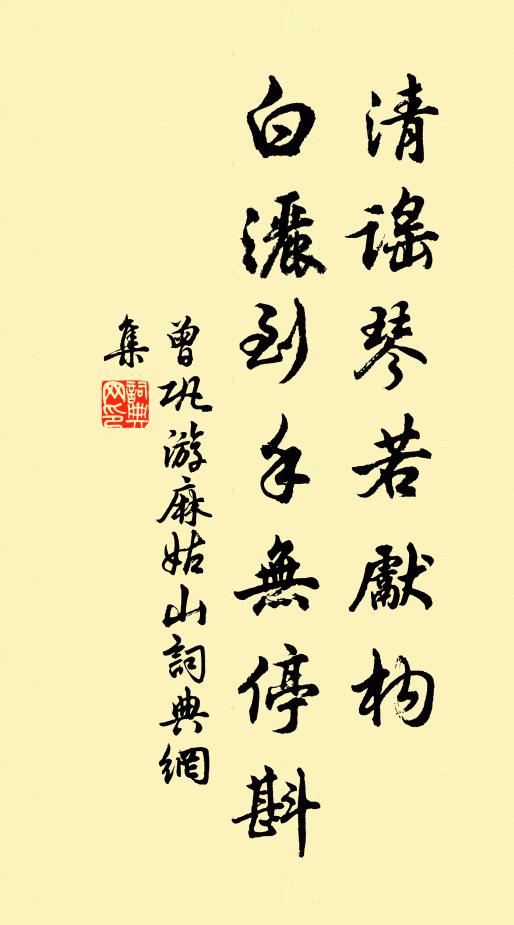 清謠琴若獻构
白灑到手無停斟
曾巩游麻姑山詞典網
集
詞典网印